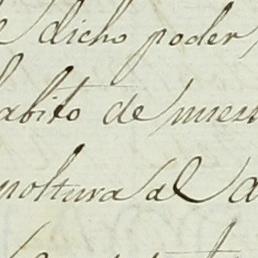 dicho poder
abito de nues
poltura al a